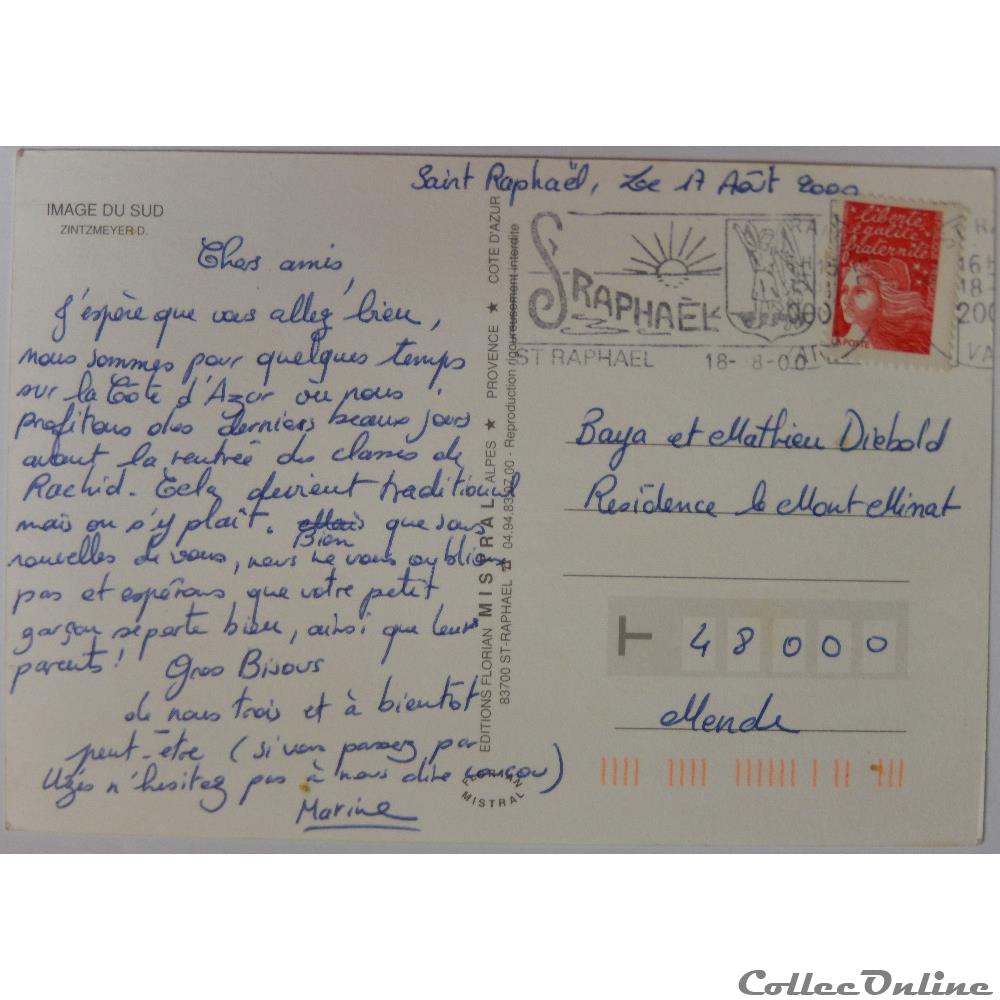 Saint Raphaël, Le 17 Août 2000
IMAGE DU SUD
ZINTZMEYER D.
Chers amis,
J'espère que vous allez bien,
nous sommes pour quelques temps
sur la Côte d'Azur ou nous
profitons des derniers beaux jours
avant la rentrée des classes de
Rachid. Cela devient traditionnel
mais on s'y plaît. Bien que sans
nouvelles de vous, nous ne vous oublions
pas et espérons que votre petit
garçon se porte bien, ainsi que leurs
parents! Gros Bisous
de nous trois et à bientôt
peut-être (si vous passez par
Uzès n'hésitez pas à nous dire coucou)
Marine
EDITIONS FLORIAN MISTRAL ★ ALPES ★ PROVENCE ★ COTE D'AZUR
83700 ST-RAPHAEL ☎ 04.94.83.07.00 - Reproduction rigoureusement interdite
FLORIAN
MISTRAL
ST RAPHAËL
ST RAPHAEL 18-8-00
liberté
égalité
fraternité
LA POSTE
16H
18-
200
VA
Baya et Mathieu Diebold
Résidence le Mont Mimat
T 48000
Mende
CollecOnline